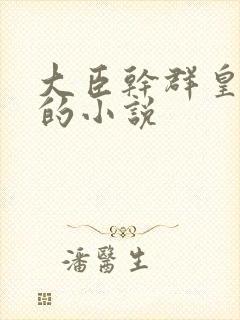 大臣幹群皇
的小說
潘醫生